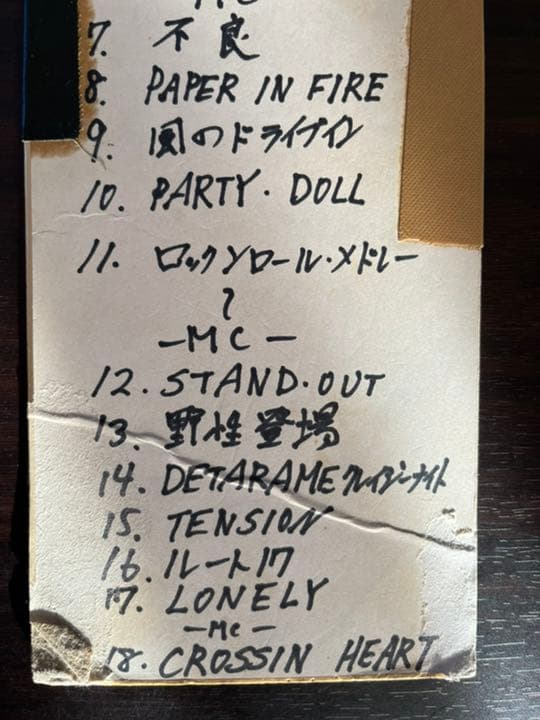 MC
7. 不良
8. PAPER IN FIRE
9. 風のドライブイン
10. PARTY・DOLL
11. ロックンロール・メドレー
〜
—MC—
12. STAND・OUT
13. 野性登場
14. DETARAME クレイジーナイト
15. TENSION
16. ルート17
17. LONELY
—MC—
18. CROSSIN HEART